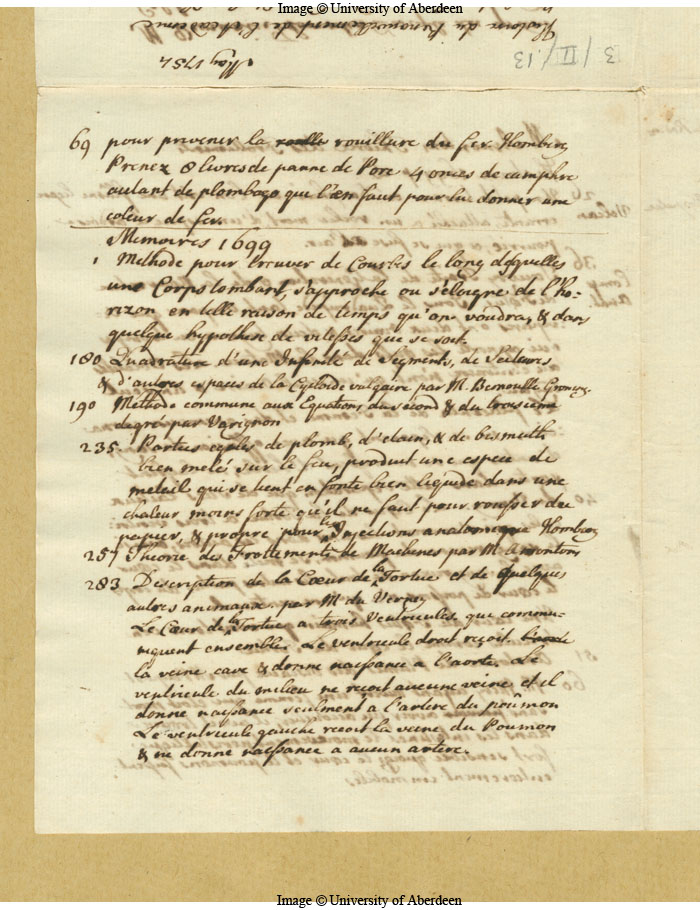 Image © University of Aberdeen
Histoire du Renouvellement de l'Academie
May 1754
3/II/13
69 pour prevenir la rouillure du fer Homberg
Prenez 8 livres de panne de Porc 4 onces de camphre
autant de plombago que l'en faut pour lui donner une
coleur de fer.
Memoires 1699
1 Methode pour trouver de Courbes le long desquelles
une Corps tombant, s'approche ou s'éloigne de l'Ho-
rizon en telle raison de temps qu'on voudra, & dans
quelque hypothese de vitesses que se soit.
180 Quadrature d'une Infinité de Segments, de Secteurs
& d'autres espaces de la Cycloide vulgaire par M. Bernoulle
190 Methode commune aux Equations du second & du troisieme
degré par Varignon
235. Parties egales de plomb, d'etain, & de bismuth
bien melés sur le feu, produit une espece de
meteil qui se tient en fonte bien liquide dans une
chaleur moins forte qu'il ne faut pour roussir du
papier, & propre pour les Injections anatomique Homberg
257 Theorie des Frottements de Machines par M Amontons
283 Description de la Cœur de la Tortue et de quelques
autres animaux. par M du Verney
Le Cœur de la Tortue a trois Ventricules que commu-
niquent ensemble. Le ventricule droit reçoit
la veine cave & donne naissance a l'aorte. Le
ventricule du milieu ne reçoit aucune veine et il
donne naissance seulment à l'artere du poûmon
Le ventricule gauche recoit la veine du Poumon
& ne donne naissance a aucun artere.
Image © University of Aberdeen